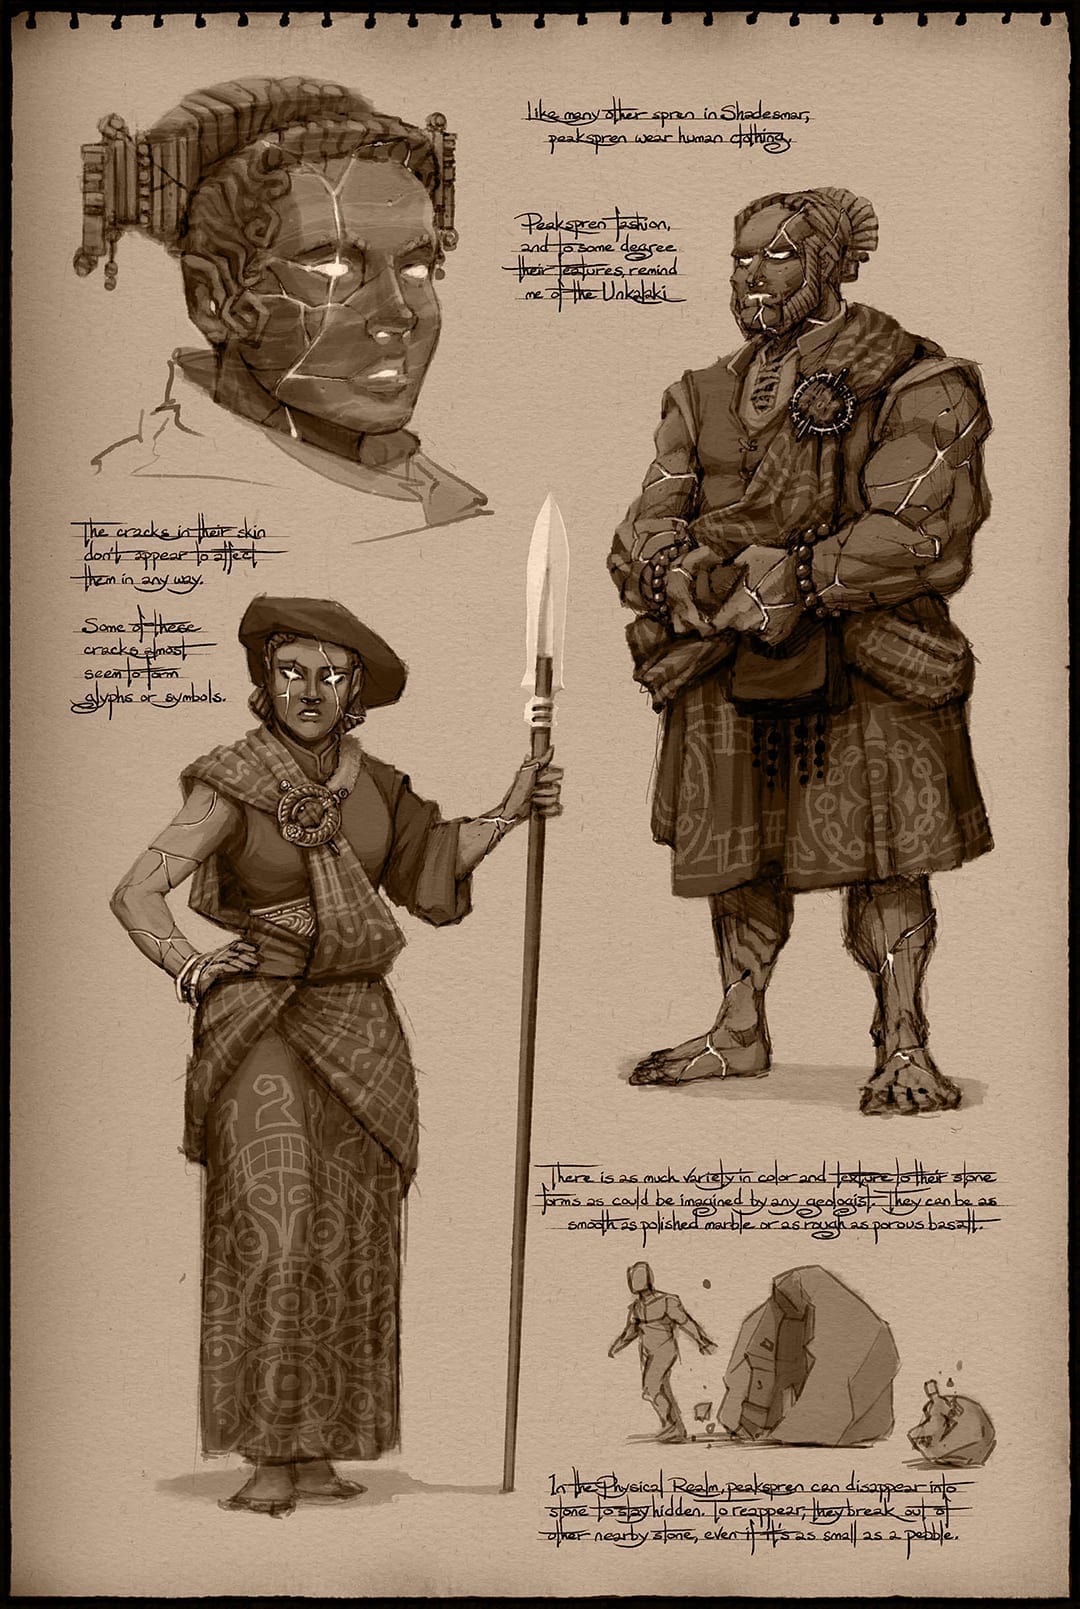 Like many other spren in Shadesmar,
peakspren wear human clothing.
Peakspren fashion,
and to some degree
their features, remind
me of the Unkalaki
The cracks in their skin
don't appear to affect
them in any way.
Some of these
cracks almost
seem to form
glyphs or symbols.
There is as much variety in color and texture to their stone
forms as could be imagined by any geologist. They can be as
smooth as polished marble or as rough as porous basalt.
In the Physical Realm, peakspren can disappear into
stone to stay hidden. To reappear, they break out of
other nearby stone, even if it's as small as a pebble.